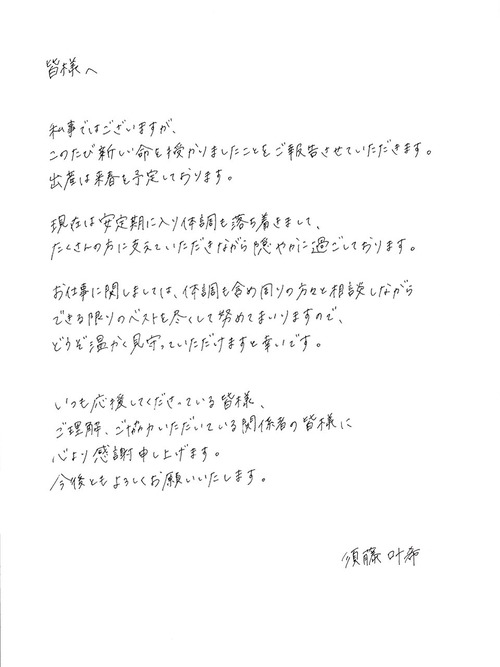 皆様へ
私事ではございますが、
このたび新しい命を授かりましたことをご報告させていただきます。
出産は来春を予定しております。
現在は安定期に入り体調も落ち着きまして、
たくさんの方に支えていただきながら穏やかに過ごしております。
お仕事に関しましては、体調も含め周りの方々と相談しながら
できる限りのベストを尽くして努めてまいりますので、
どうぞ温かく見守っていただけますと幸いです。
いつも応援してくださっている皆様、
ご理解、ご協力いただいている関係者の皆様に
心より感謝申し上げます。
今後ともよろしくお願いいたします。
須藤叶希